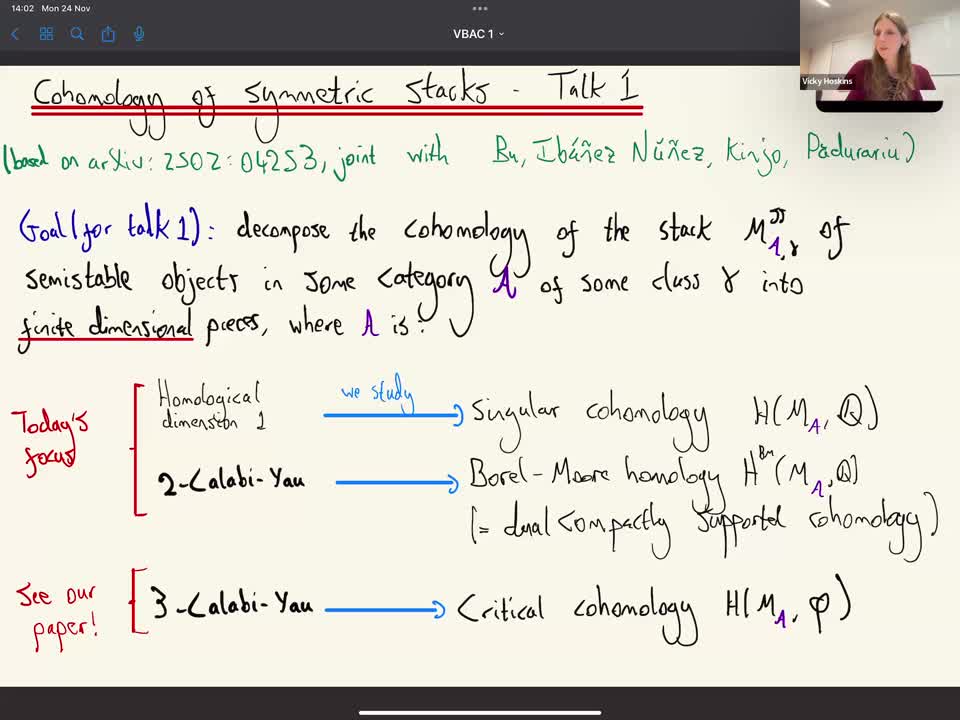 14:02 Mon 24 Nov
VBAC 1
Vicky Hoskins
Cohomology of Symmetric Stacks - Talk 1
(based on arXiv: 2502:04253, joint with Bu, Ibáñez Núñez, Kinjo, Pădurariu)
Goal (for talk 1): decompose the cohomology of the stack M^{ss}_{A,γ} of
semistable objects in some category A of some class γ into
finite dimensional pieces, where A is:
Today's focus
Homological dimension 1
we study
Singular cohomology H(M_A, Q)
2-Calabi-Yau
Borel-Moore homology H^{BM}(M_A, Q)
(= dual compactly supported cohomology)
See our paper!
3-Calabi-Yau
Critical cohomology H(M_A, φ)